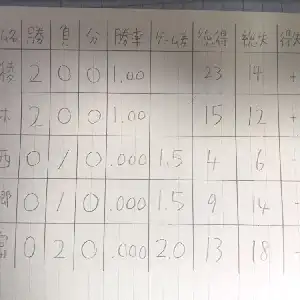 名 勝 負 分 勝率 ゲーム差 総得 総失 得失
2 0 0 1.00 23 4 +
2 0 0 1.00 15 12 +
西 0 1 0 .000 1.5 4 6 -
郷 0 1 0 .000 1.5 9 14 -
0 2 0 .000 2.0 13 18 -